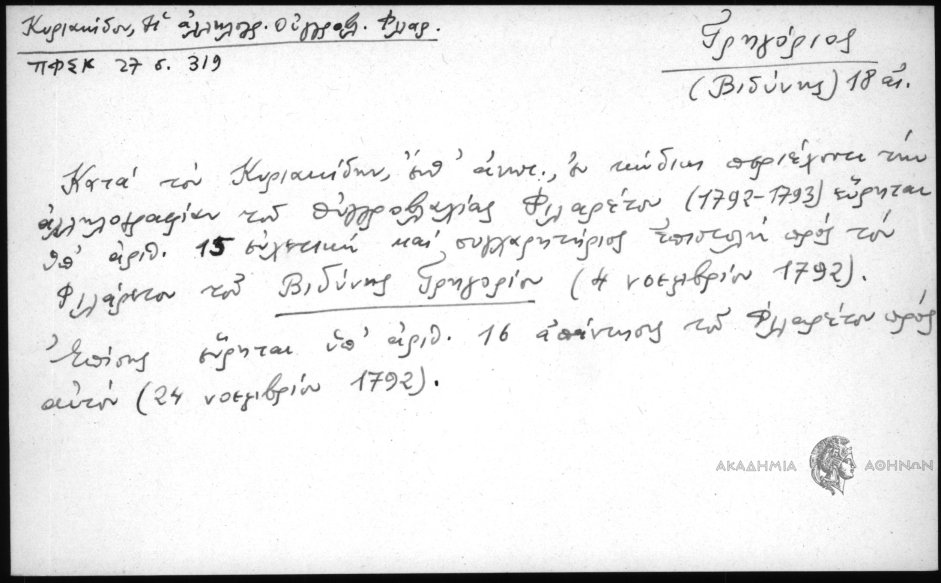 Κυριακίδου, Ἡ ἀλληλογρ. Οὐγγροβλ. Φιλαρ.
ΠΦΣΚ 27 σ. 319
Γρηγόριος
(Βιδύνης) 18 αἰ.
Κατά τόν Κυριακίδην, ἔνθ' ἀνωτ., ἐν κώδικι περιέχοντι τήν
ἀλληλογραφίαν τοῦ Οὐγγροβλαχίας Φιλαρέτου (1792-1793) εὕρηται
ὑπ' ἀριθ. 15 εὐχετική καί συγχαρητήριος ἐπιστολή πρός τόν
Φιλάρετον τοῦ Βιδύνης Γρηγορίου (4 νοεμβρίου 1792).
Ἐπίσης εὕρηται ὑπ' ἀριθ. 16 ἀπάντησις τοῦ Φιλαρέτου πρός
αὐτόν (24 νοεμβρίου 1792).
ΑΚΑΔΗΜΙΑ ΑΘΗΝΩΝ